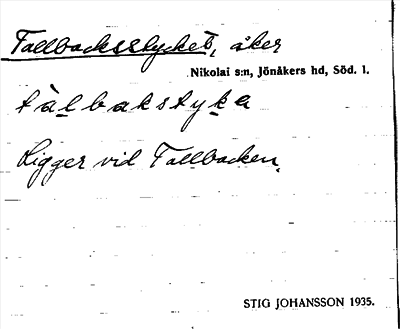 Tallbacksstycket, åker
Nikolai s:n, Jönåkers hd, Söd. l.
tàlbakstyka
Ligger vid Tallbacken.
STIG JOHANSSON 1935.